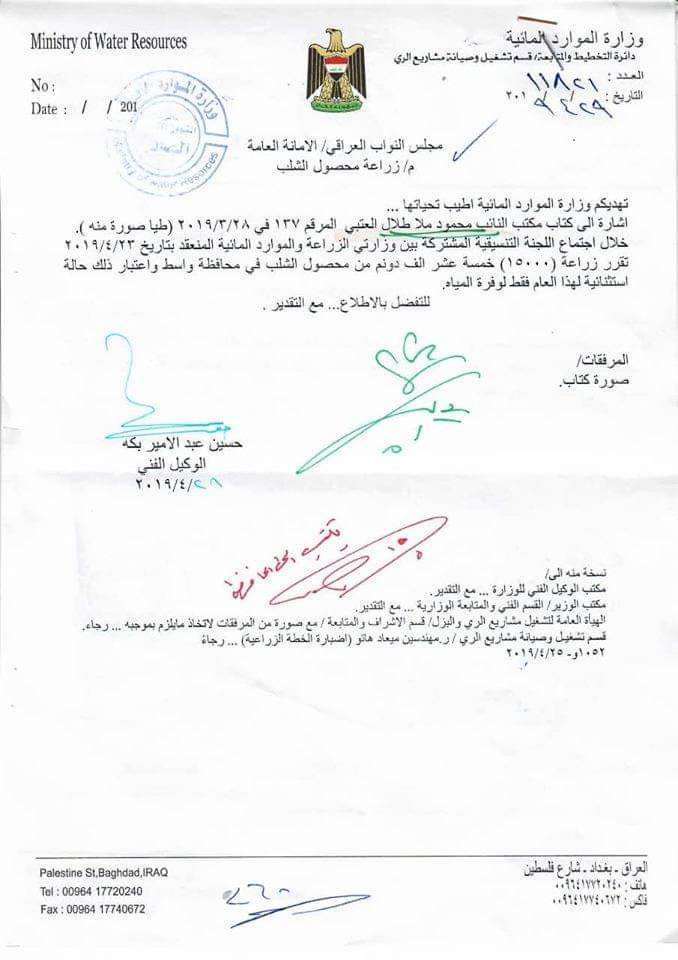 Ministry of Water Resources
وزارة الموارد المائية
دائرة التخطيط والمتابعة/ قسم تشغيل وصيانة مشاريع الري
No :
العدد : ١١٨٢١
Date : / / 201
التاريخ : ٢٠١٩/٤/٢٩
وزارة الموارد
Ministry of Water Resources
مجلس النواب العراقي/ الامانة العامة
م/ زراعة محصول الشلب
تهديكم وزارة الموارد المائية اطيب تحياتها ...
اشارة الى كتاب مكتب النائب محمود ملا طلال العتبي المرقم ١٣٧ في ٢٠١٩/٣/٢٨ (طيا صورة منه ).
خلال اجتماع اللجنة التنسيقية المشتركة بين وزارتي الزراعة والموارد المائية المنعقد بتاريخ ٢٠١٩/٤/٢٣
تقرر زراعة (١٥٠٠٠) خمسة عشر الف دونم من محصول الشلب في محافظة واسط واعتبار ذلك حالة
استثنائية لهذا العام فقط لوفرة المياه.
للتفضل بالاطلاع... مع التقدير .
المرفقات/
صورة كتاب.
حسين عبد الامير بكه
الوكيل الفني
٢٠١٩/٤/٢٨
نسخة منه الى/
مكتب الوكيل الفني للوزارة ... مع التقدير.
مكتب الوزير/ القسم الفني والمتابعة الوزارية ... مع التقدير.
الهيأة العامة لتشغيل مشاريع الري والبزل/ قسم الاشراف والمتابعة / مع صورة من المرفقات لاتخاذ مايلزم بموجبه ... رجاء.
قسم تشغيل وصيانة مشاريع الري / ر.مهندسين ميعاد هاتو (اضبارة الخطة الزراعية) ... رجاءً
١٠٥٢و- ٢٠١٩/٤/٢٥
Palestine St,Baghdad,IRAQ
Tel : 00964 17720240
Fax : 00964 17740672
العراق ـ بغداد ـ شارع فلسطين
هاتف : ٠٠٩٦٤١٧٧٢٠٢٤٠
فاكس : ٠٠٩٦٤١٧٧٤٠٦٧٢